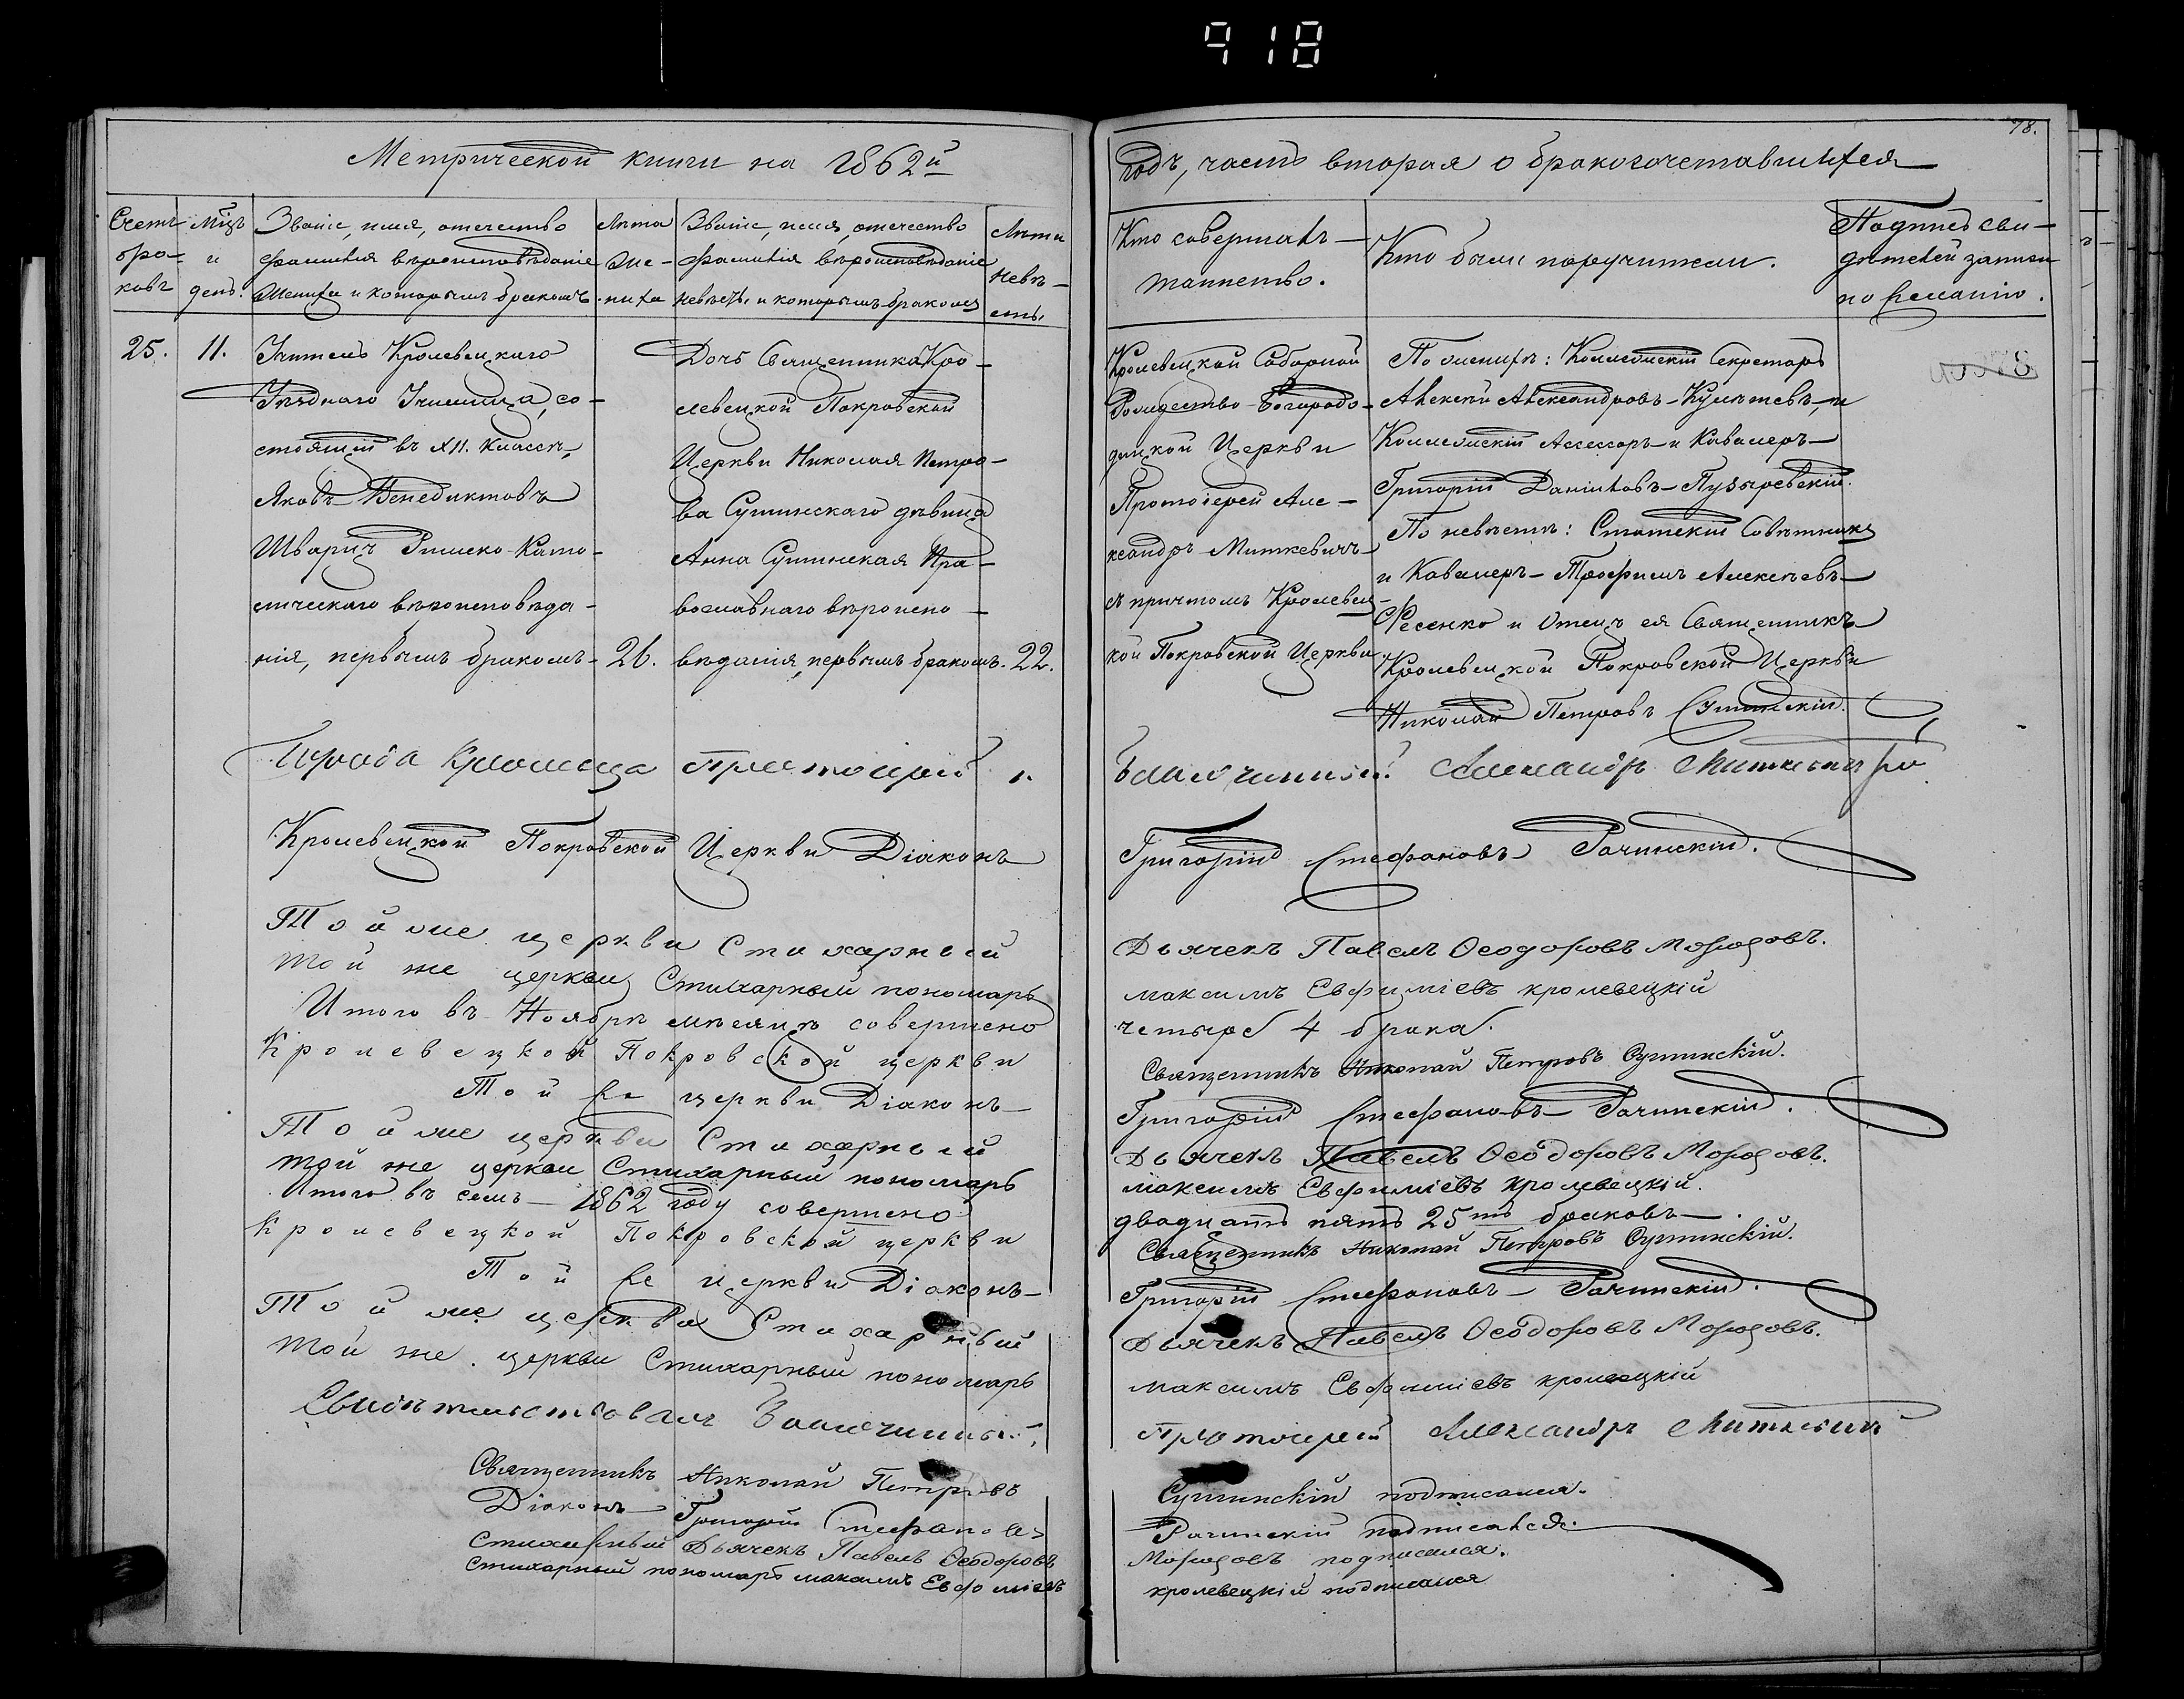 918
78.
Метрической книги на 1862й
Счетъ
бра-
ковъ
Мцъ
и
день.
Званіе, имя, отечество
фамилія вероисповѣданіе
жениха и которымъ бракомъ
Лѣта
же-
ниха
Званіе, имя, отечество
фамилія вероисповѣданіе
невѣсты и которымъ бракомъ
Лѣта
невѣ-
сты
25.
11.
Учитель Кролевецкаго
Уѣзднаго Училища, со-
стоящій въ XII. классѣ,
Яковъ Венедиктовъ
Шварцъ Римско-Като-
лическаго вѣроисповѣда-
нія, первымъ бракомъ-
26.
Дочь Священника Кро-
левецкой Покровской
Церкви Николая Петро-
ва Сушинскаго дѣвица
Анна Сушинская Пра-
вославнаго вѣроиспо-
вѣданія, первымъ бракомъ.
22.
Города Кролевца Протоіерей
Кролевецкой Покровской Церкви Діаконъ
Той же церкви Стихарный
той же церкви Стихарный пономарь
Итого въ Ноябрѣ мѣсяцѣ совершено
Кролевецкой Покровской церкви
Той же церкви Діаконъ
Той же церкви Стихарный
той же церкви Стихарный пономарь
Итого въ семъ 1862 году совершено
Кролевецкой Покровской церкви
Той же церкви Діаконъ
Той же церкви Стихарный
той же церкви Стихарный пономарь
Свидѣтельствовалъ Благочинный,
Священникъ Николай Петровъ
Діаконъ Григорій Стефановъ
Стихарный Дьячекъ Павелъ Ѳеодоровъ
Стихарный пономарь максимъ Евфиміевъ
годъ, часть вторая о бракосочетавшихся
Кто совершалъ
таинство.
Кто были поручители.
Подпись сви-
дѣтелей записи
по желанію.
Кролевецкой Соборной
Рождество-Богоро-
дицкой Церкви
Протоіерей Але-
ксандръ Миткевичъ
съ причтомъ Кролевец-
кой Покровской Церкви.
По женихѣ: Коллежскій Секретарь
Алексѣй Александровъ и
Коллежскій Асессоръ и Кавалеръ
Григорій Даніиловъ Пузыревскій.
По невѣстѣ: Статскій Совѣтникъ
и Кавалеръ Трофимъ Алексѣевъ
Фесенко и Отецъ ея Священникъ
Кролевецкой Покровской Церкви
Николай Петровъ Сушинскій.
Благочинный Александръ Миткевичъ
Григорій Стефановъ Рачинскій.
Дьячекъ Павелъ Ѳеодоровъ Морозовъ.
максимъ Евфиміевъ кролевецкій
четыре 4 брака.
Священникъ Николай Петровъ Сушинскій.
Григорій Стефановъ Рачинскій.
Дьячекъ Павелъ Ѳеодоровъ Морозовъ.
максимъ Евфиміевъ кролевецкій.
двадцать пять 25ть браковъ.
Священникъ Николай Петровъ Сушинскій.
Григорій Стефановъ Рачинскій.
Дьячекъ Павелъ Ѳеодоровъ Морозовъ.
максимъ Евфиміевъ кролевецкій
Протоіерей Александръ Миткевичъ
Сушинскій подписался.
Рачинскій подписался.
Морозовъ подписался.
кролевецкій подписался